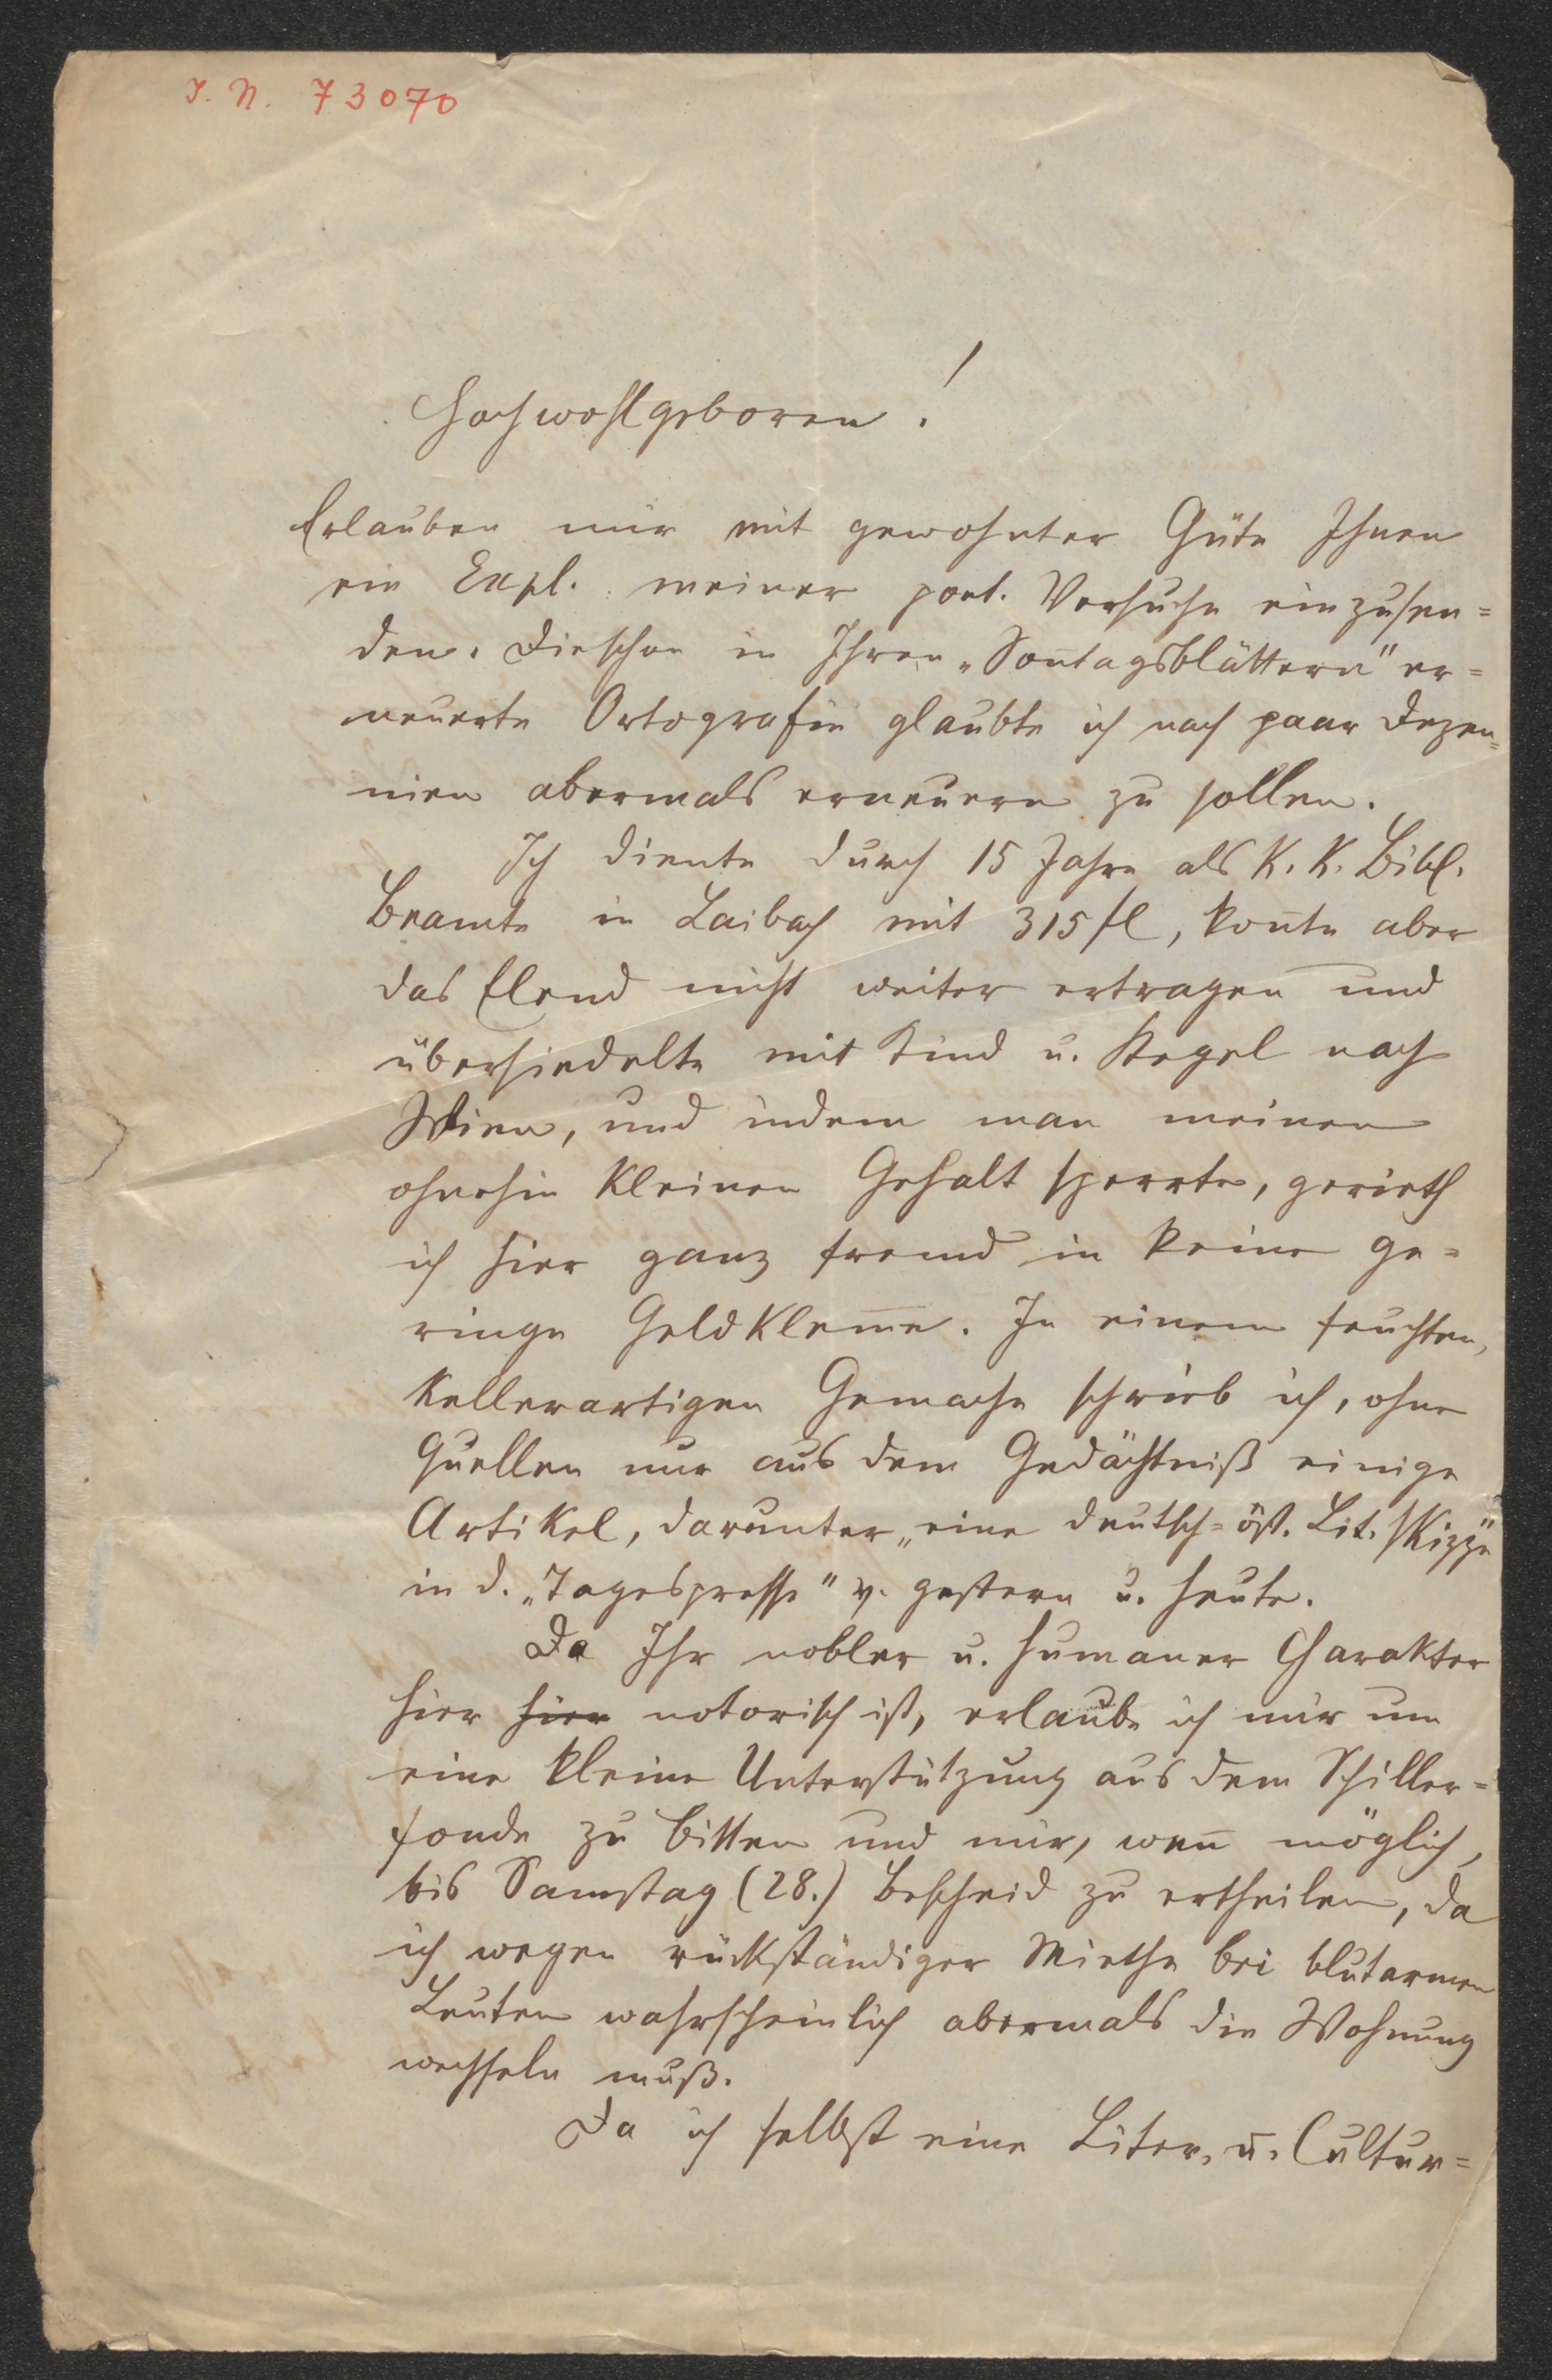 I. N. 73070
Hochwohlgeboren!
Erlauben mir mit gewohnter Güte Ihnen
ein Expl. meiner poet. Versuche einzusen=
den. Die schon in Ihren „Sontagsblättern" er=
neuerte Ortografie glaubte ich nach paar Dezen=
nien abermals erneuern zu sollen.
Ich diente durch 15 Jahre als K. K. Bibl.
Beamte in Laibach mit 315 fl, konte aber
das Elend nicht weiter ertragen und
übersiedelte mit Kind u. Kegel nach
Wien, und indem man meinen
ohnehin kleinen Gehalt sperrte, gerieth
ich hier ganz fremd in keine ge=
ringe Geldkleme. In einem feuchten,
kellerartigen Gemache schrieb ich, ohne
Quellen nur aus dem Gedächtniß einige
Artikel, darunter „eine deutsch=öst. Lit. Skizze"
in d. „Tagespresse" v. gestern u. heute.
Da Ihr nobler u. humaner Charakter
hier hier notorisch ist, erlaube ich mir um
eine kleine Unterstützung aus dem Schiller=
fonde zu bitten und mir, wen möglich,
bis Samstag (28.) Bescheid zu ertheilen, da
ich wegen rückständiger Miethe bei blutarmen
Leuten wahrscheinlich abermals die Wohnung
wechseln muß.
Da ich selbst eine Liter. u. Cultur=